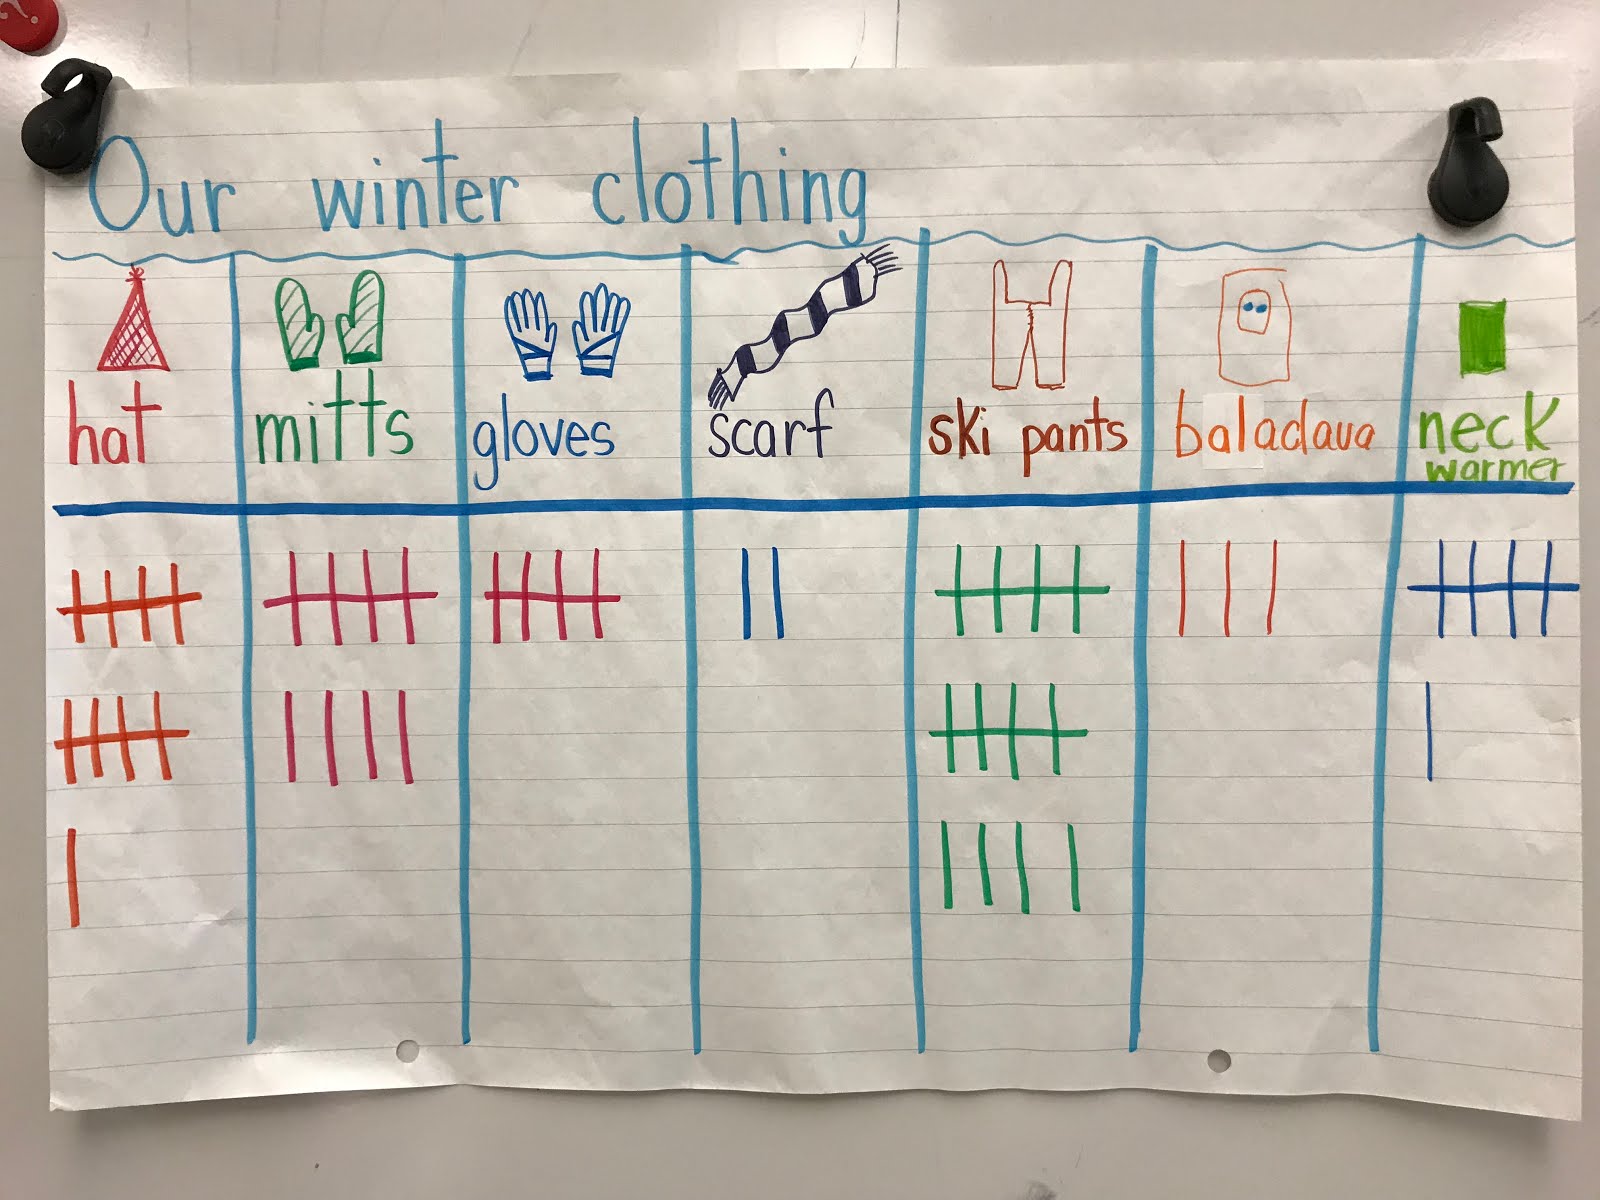 Our winter clothing
hat mitts gloves scarf ski pants baladava neck
warmer